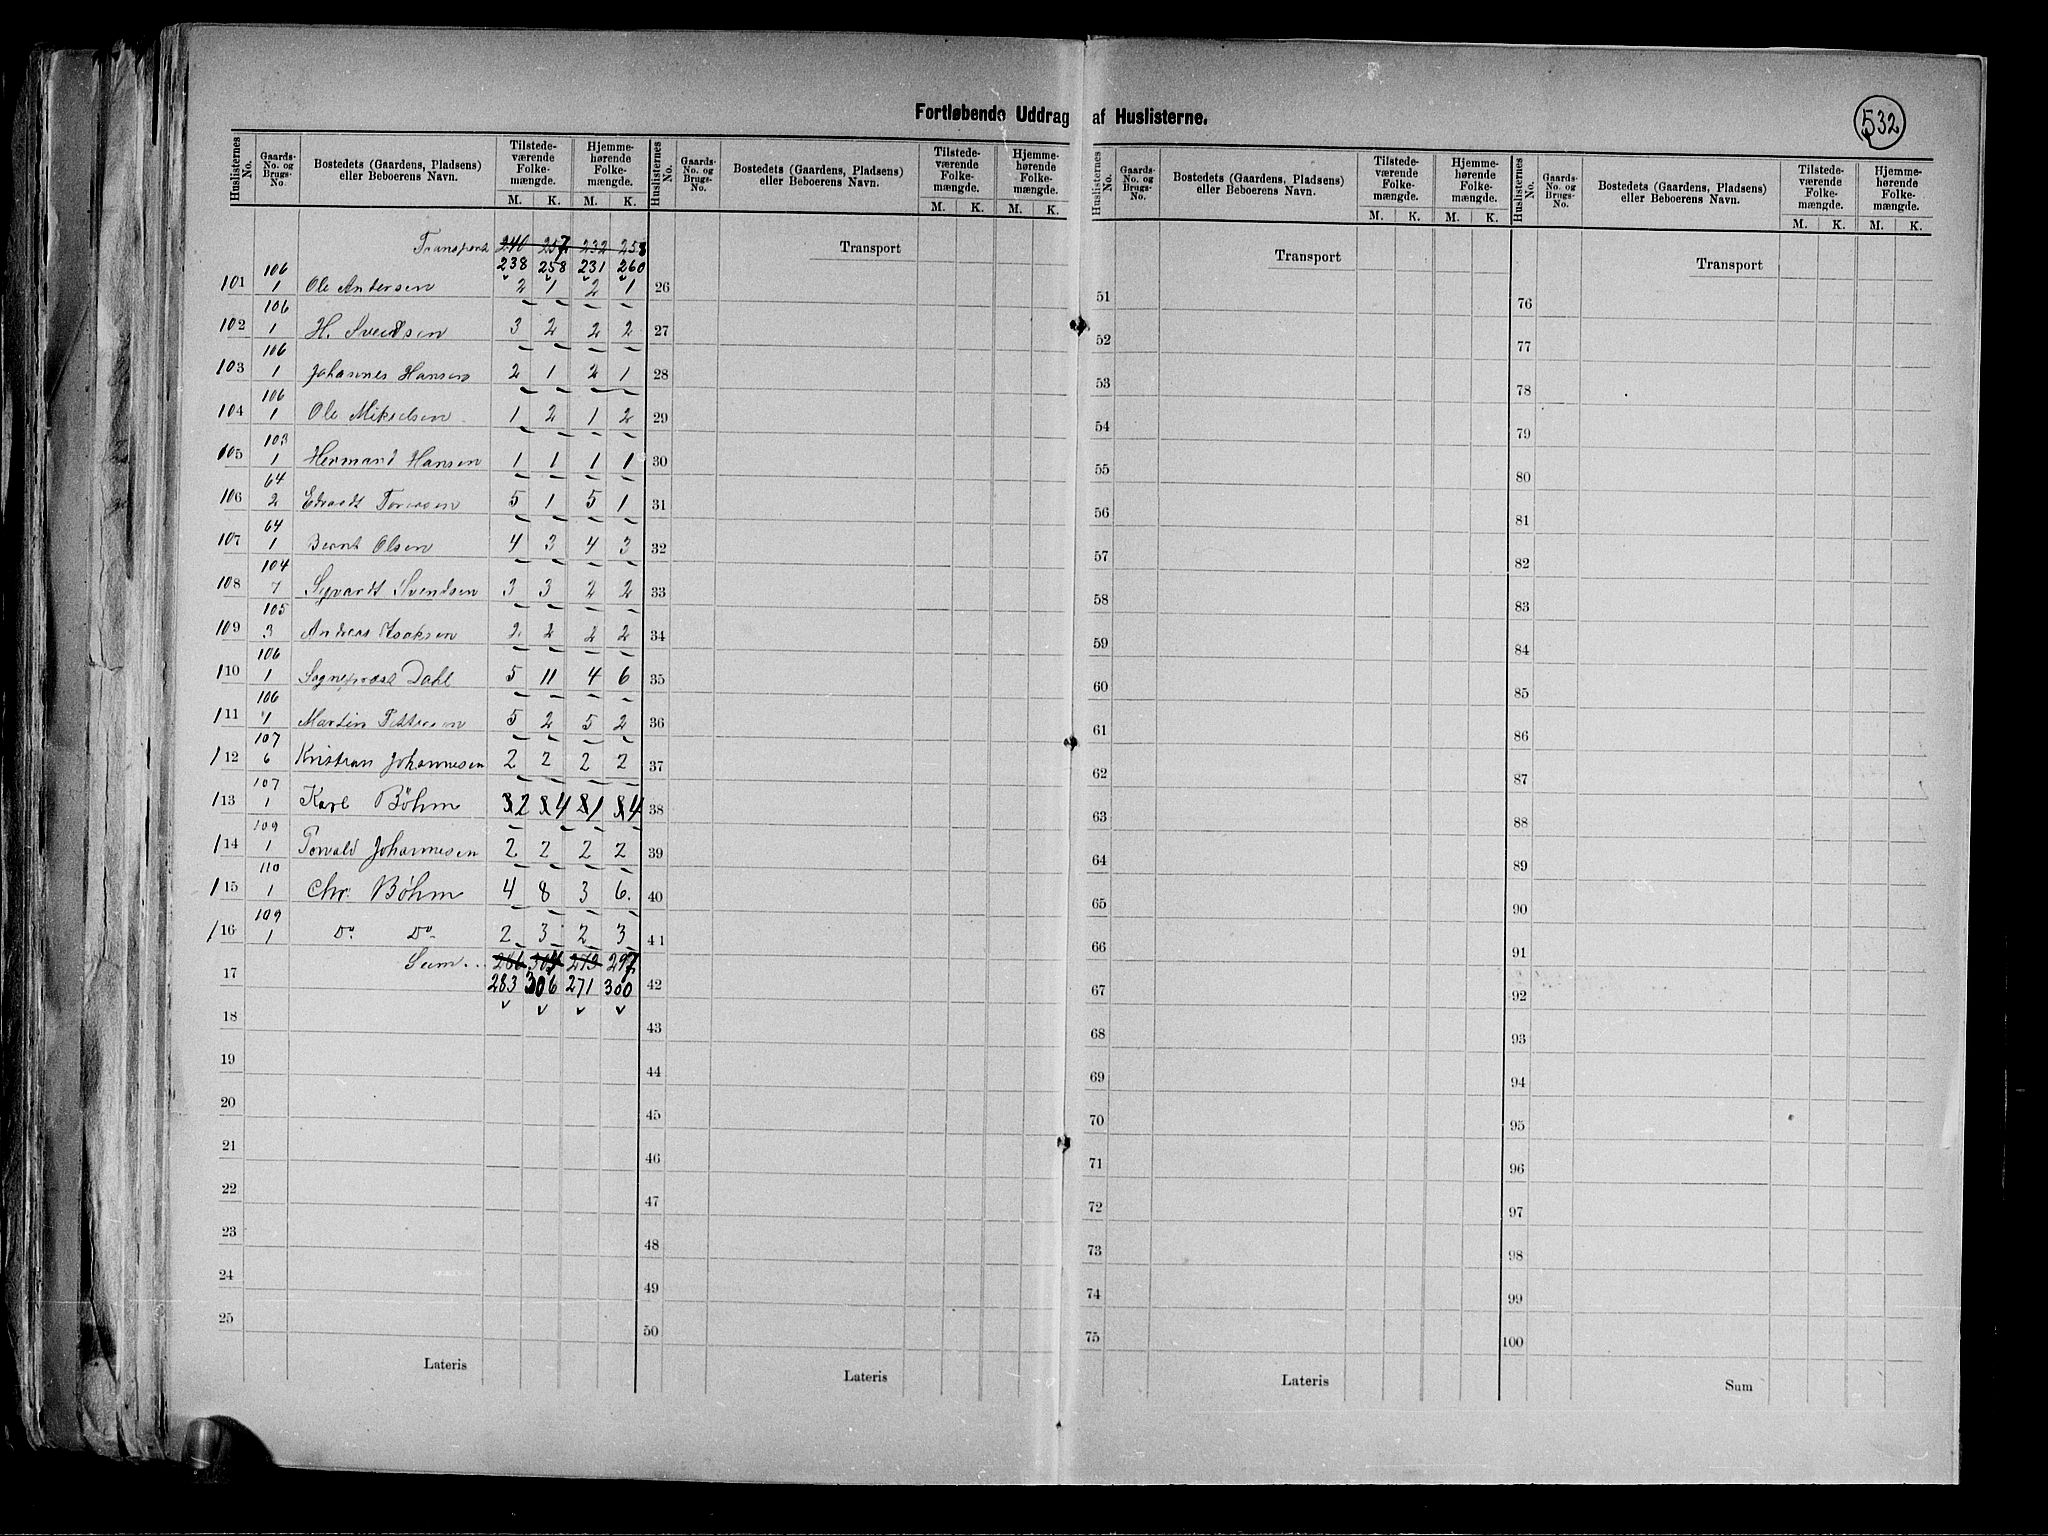 Fortløbende Uddrag af Huslisterne.
532
Huslisternes No. | Gaards-No. og Brugs-No. | Bostedets (Gaardens, Pladsens) eller Beboerens Navn. | Tilstedeværende Folkemængde. M. K. | Hjemmehørende Folkemængde. M. K.
Huslisternes No. | Gaards-No. og Brugs-No. | Bostedets (Gaardens, Pladsens) eller Beboerens Navn. | Tilstedeværende Folkemængde. M. K. | Hjemmehørende Folkemængde. M. K.
Huslisternes No. | Gaards-No. og Brugs-No. | Bostedets (Gaardens, Pladsens) eller Beboerens Navn. | Tilstedeværende Folkemængde. M. K. | Hjemmehørende Folkemængde. M. K.
Huslisternes No. | Gaards-No. og Brugs-No. | Bostedets (Gaardens, Pladsens) eller Beboerens Navn. | Tilstedeværende Folkemængde. M. K. | Hjemmehørende Folkemængde. M. K.
Transport 240 257 232 258
238 258 231 260
101 106/1 Ole Andersen 2 1 2 1
102 106/1 H. Svendsen 3 2 2 2
103 106/1 Johannes Hansen 2 1 2 1
104 106/1 Ole Mikelsen 1 2 1 2
105 103/1 Hermand Hansen 1 1 1 1
106 64/2 Edvardt 5 1 5 1
107 64/1 Bernt Olsen 4 3 4 3
108 104/7 Sigvardt Svendsen 3 3 2 2
109 105/3 Andreas Isaksen 2 2 2 2
110 106/1 Sognepræst Dahl 5 11 4 6
111 106/1 Martin Pettersen 5 2 5 2
112 107/6 Kristian Johannesen 2 2 2 2
113 107/1 Karl Böhm 2 4 1 4
114 109/1 Torvald Johannesen 2 2 2 2
115 110/1 Chr. Böhm 4 8 3 6.
116 109/1 Do. Do. 2 3 2 3
Sum .. 286 304 273 297
17 283 306 271 300
18
19
20
21
22
23
24
25
Lateris
Transport
26
27
28
29
30
31
32
33
34
35
36
37
38
39
40
41
42
43
44
45
46
47
48
49
50
Lateris
Transport
51
52
53
54
55
56
57
58
59
60
61
62
63
64
65
66
67
68
69
70
71
72
73
74
75
Lateris
Transport
76
77
78
79
80
81
82
83
84
85
86
87
88
89
90
91
92
93
94
95
96
97
98
99
100
Sum